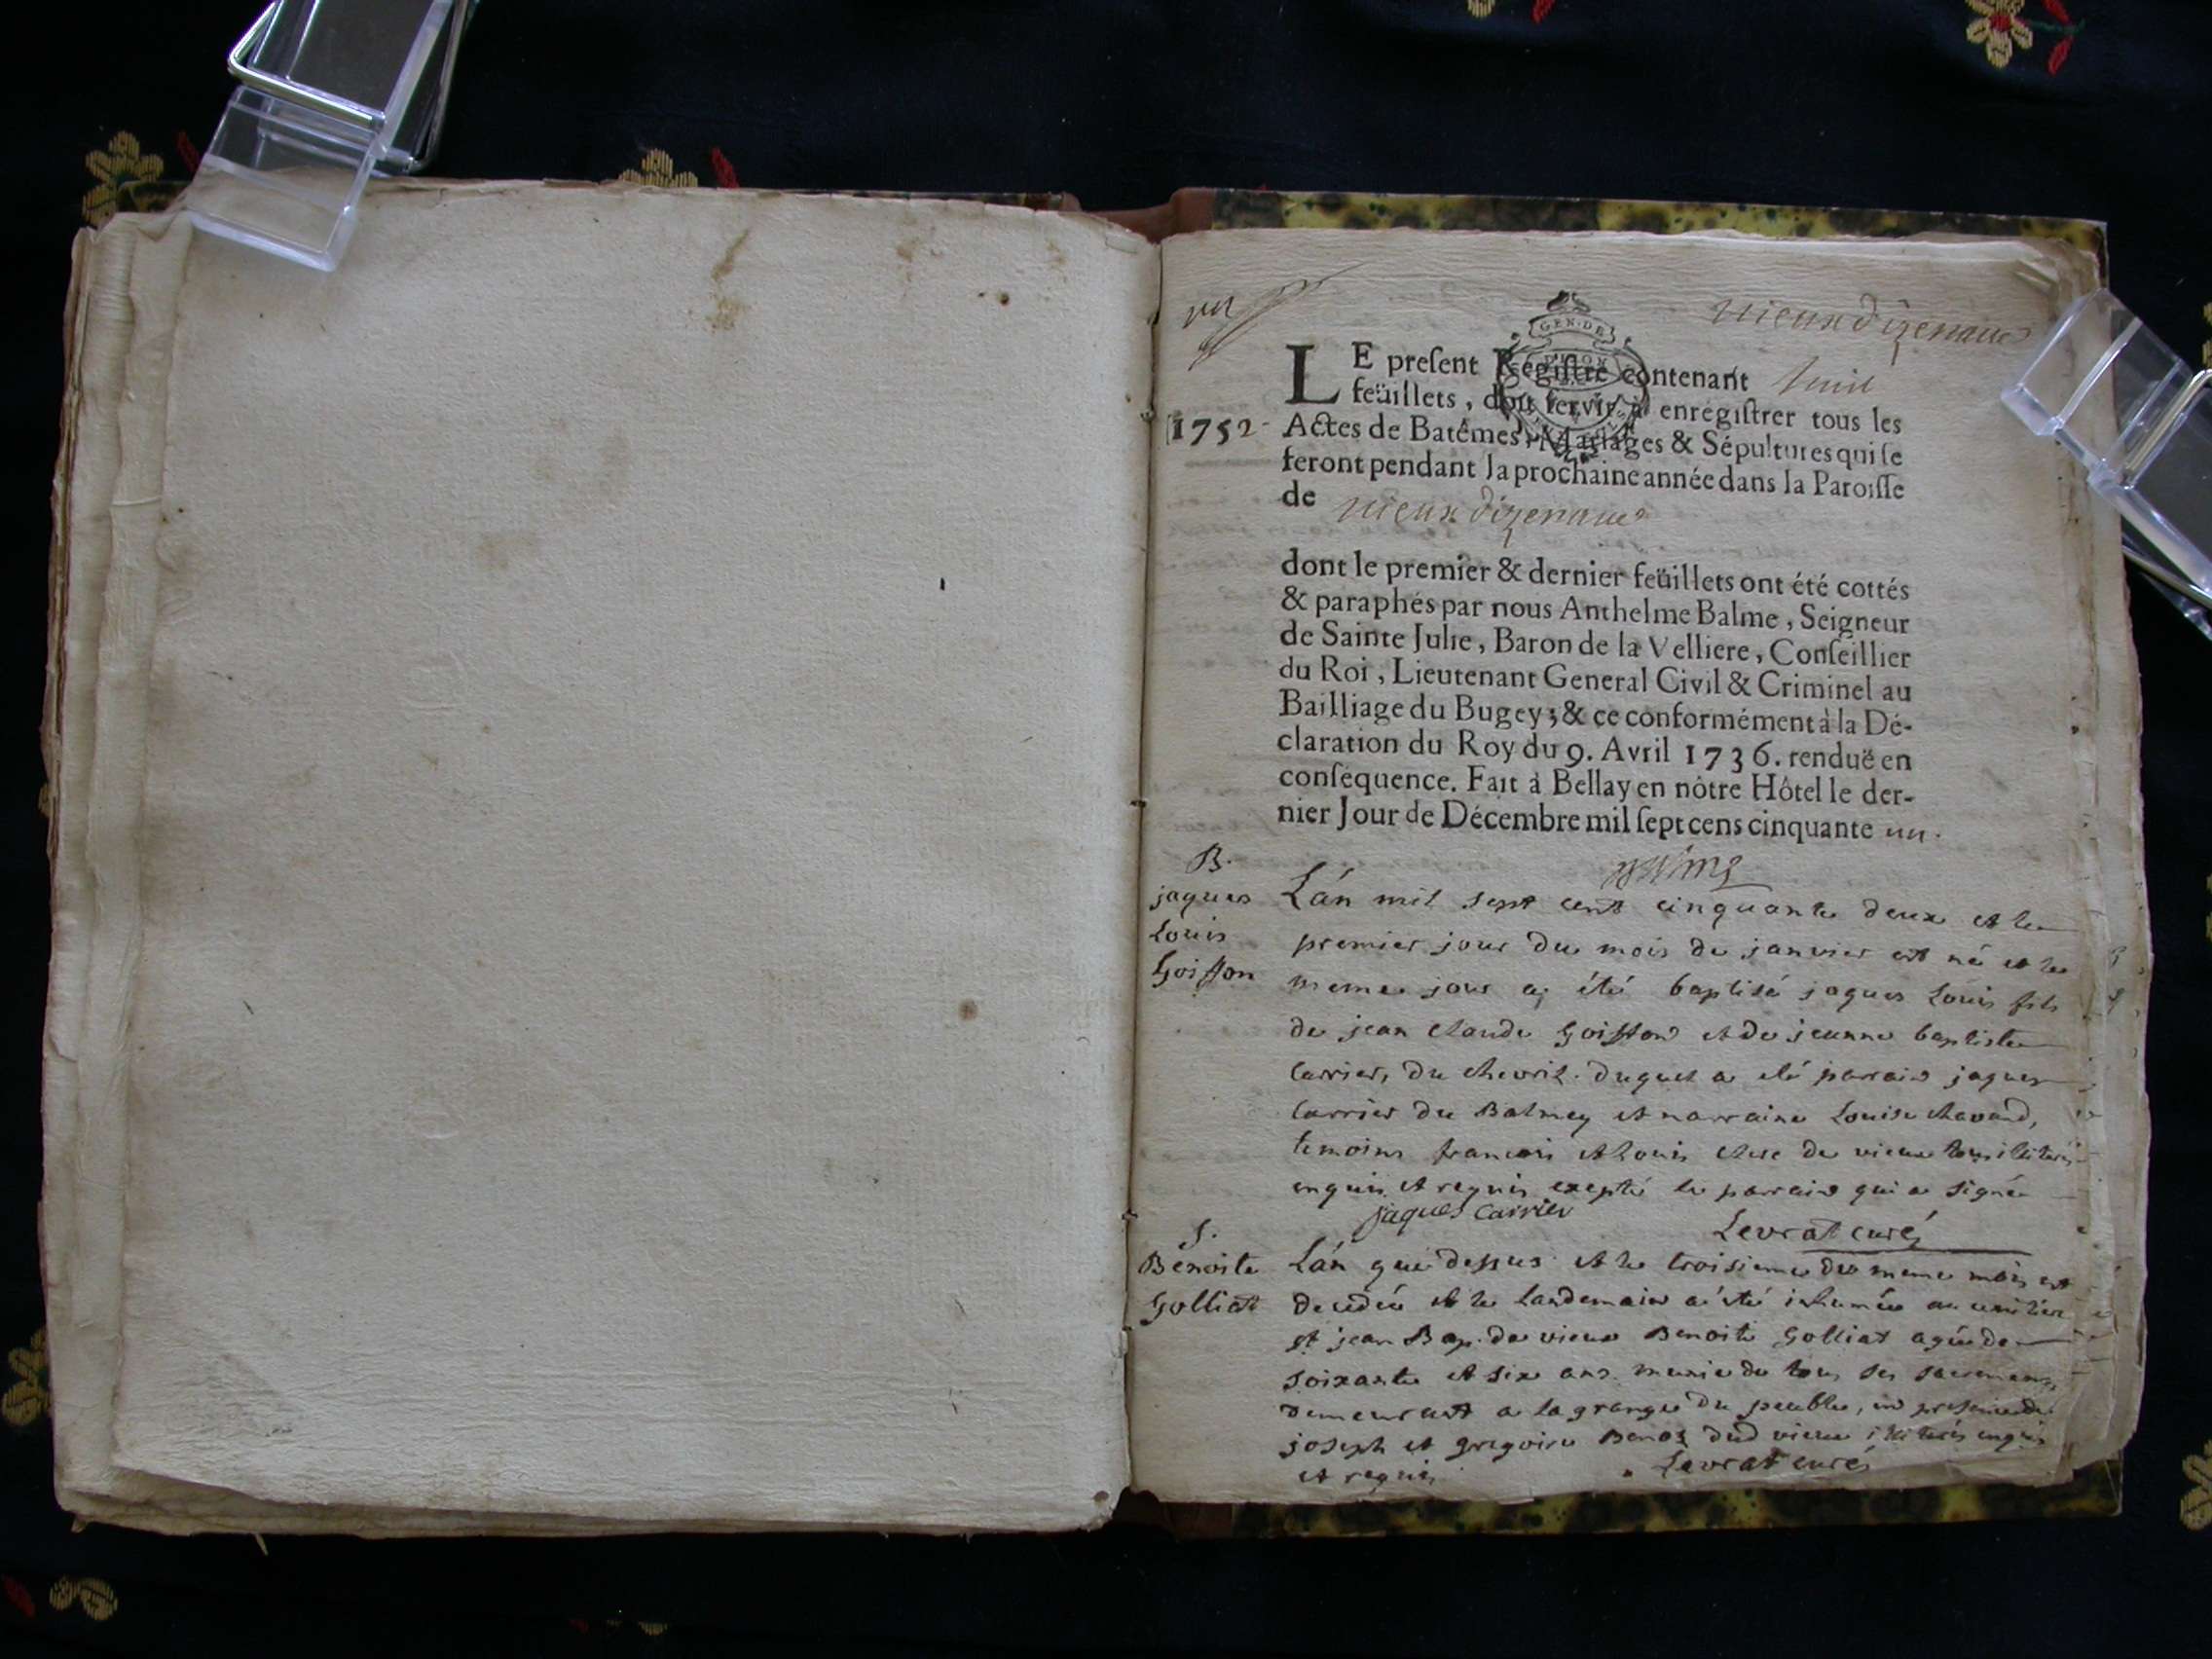 vieux dizenaue
GEN·DE
DIJON
LE preſent Regiſtre contenant huit
feüillets, doit ſervir à enrégiſtrer tous les
1752
Actes de Batêmes, Mariages & Sépultures qui ſe
feront pendant la prochaine année dans la Paroiſſe
de vieux dizenaue
dont le premier & dernier feüillets ont été cottés
& paraphés par nous Anthelme Balme, Seigneur
de Sainte Julie, Baron de la Velliere, Conſeillier
du Roi, Lieutenant General Civil & Criminel au
Bailliage du Bugey; & ce conformément à la Dé-
claration du Roy du 9. Avril 1736. renduë en
conſéquence. Fait à Bellay en nôtre Hôtel le der-
nier Jour de Décembre mil ſept cens cinquante un.
B.
jaques
Louis
Goiffon
L'an mil sept cent cinquante deux et le
premier jour du mois de janvier est né et le
meme jour a été baptisé jaques Louis fils
de jean claude Goiffon et de jeanne baptiste
Carrier, du chevril. duquel a été parrain jaques
Carrier du Balmey et marraine Louise chavand,
temoins francois et Louis clerc de vieux tous illiterés
enquis et requis exepté le parrain qui a signé
jaques Carrier
Levrat curé
S.
Benoite
Golliat
L'an que dessus et le troisieme du meme mois est
decedée et le landemain a été inhumée au cimitiere
st jean Bap. de vieux Benoite Golliat agée de
soixante et six ans munie de tous ses sacremens,
demeurant a la grange du peuble, en presence de
joseph et gregoire Benoz dud vieux illiterés enquis
et requis
Levrat curé